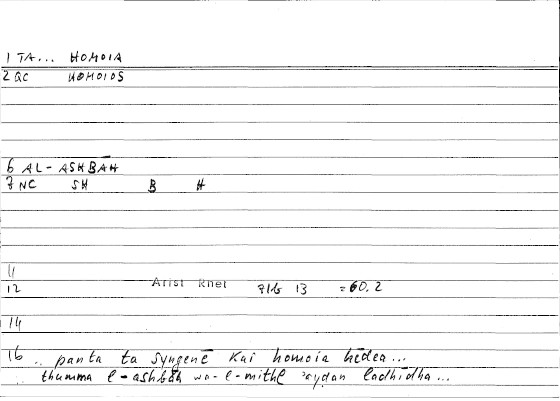 1 TA... HOMOIA
2 QC HOMOIOS
6 AL-ASHBĀH
7 NC SH B H
11
12 Arist Rhet 71b 13 =60.2
14
16 .. panta ta syngenē kai homoia hēdea...
thumma l-ashbāh wa-l-mithl ʾayḍan ladhīdha...